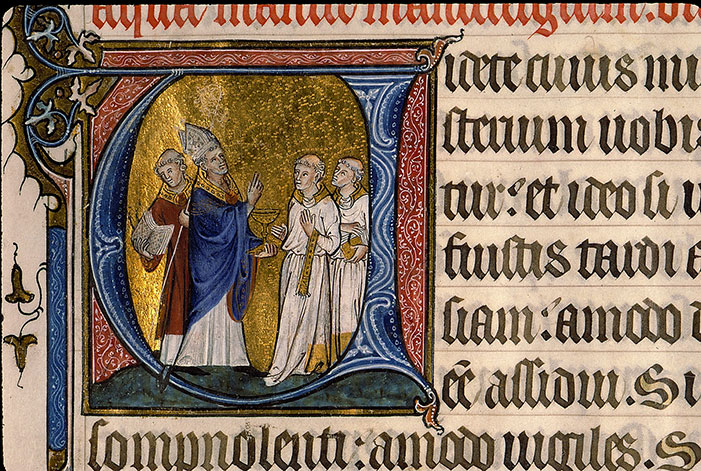 aqua manutergium
idete cuius mi
sterium uobis
tur: et ideo si
fuistis tardi
siam: amodo
ēē assidui. Si
sompnolenti: amodo uigiles. S